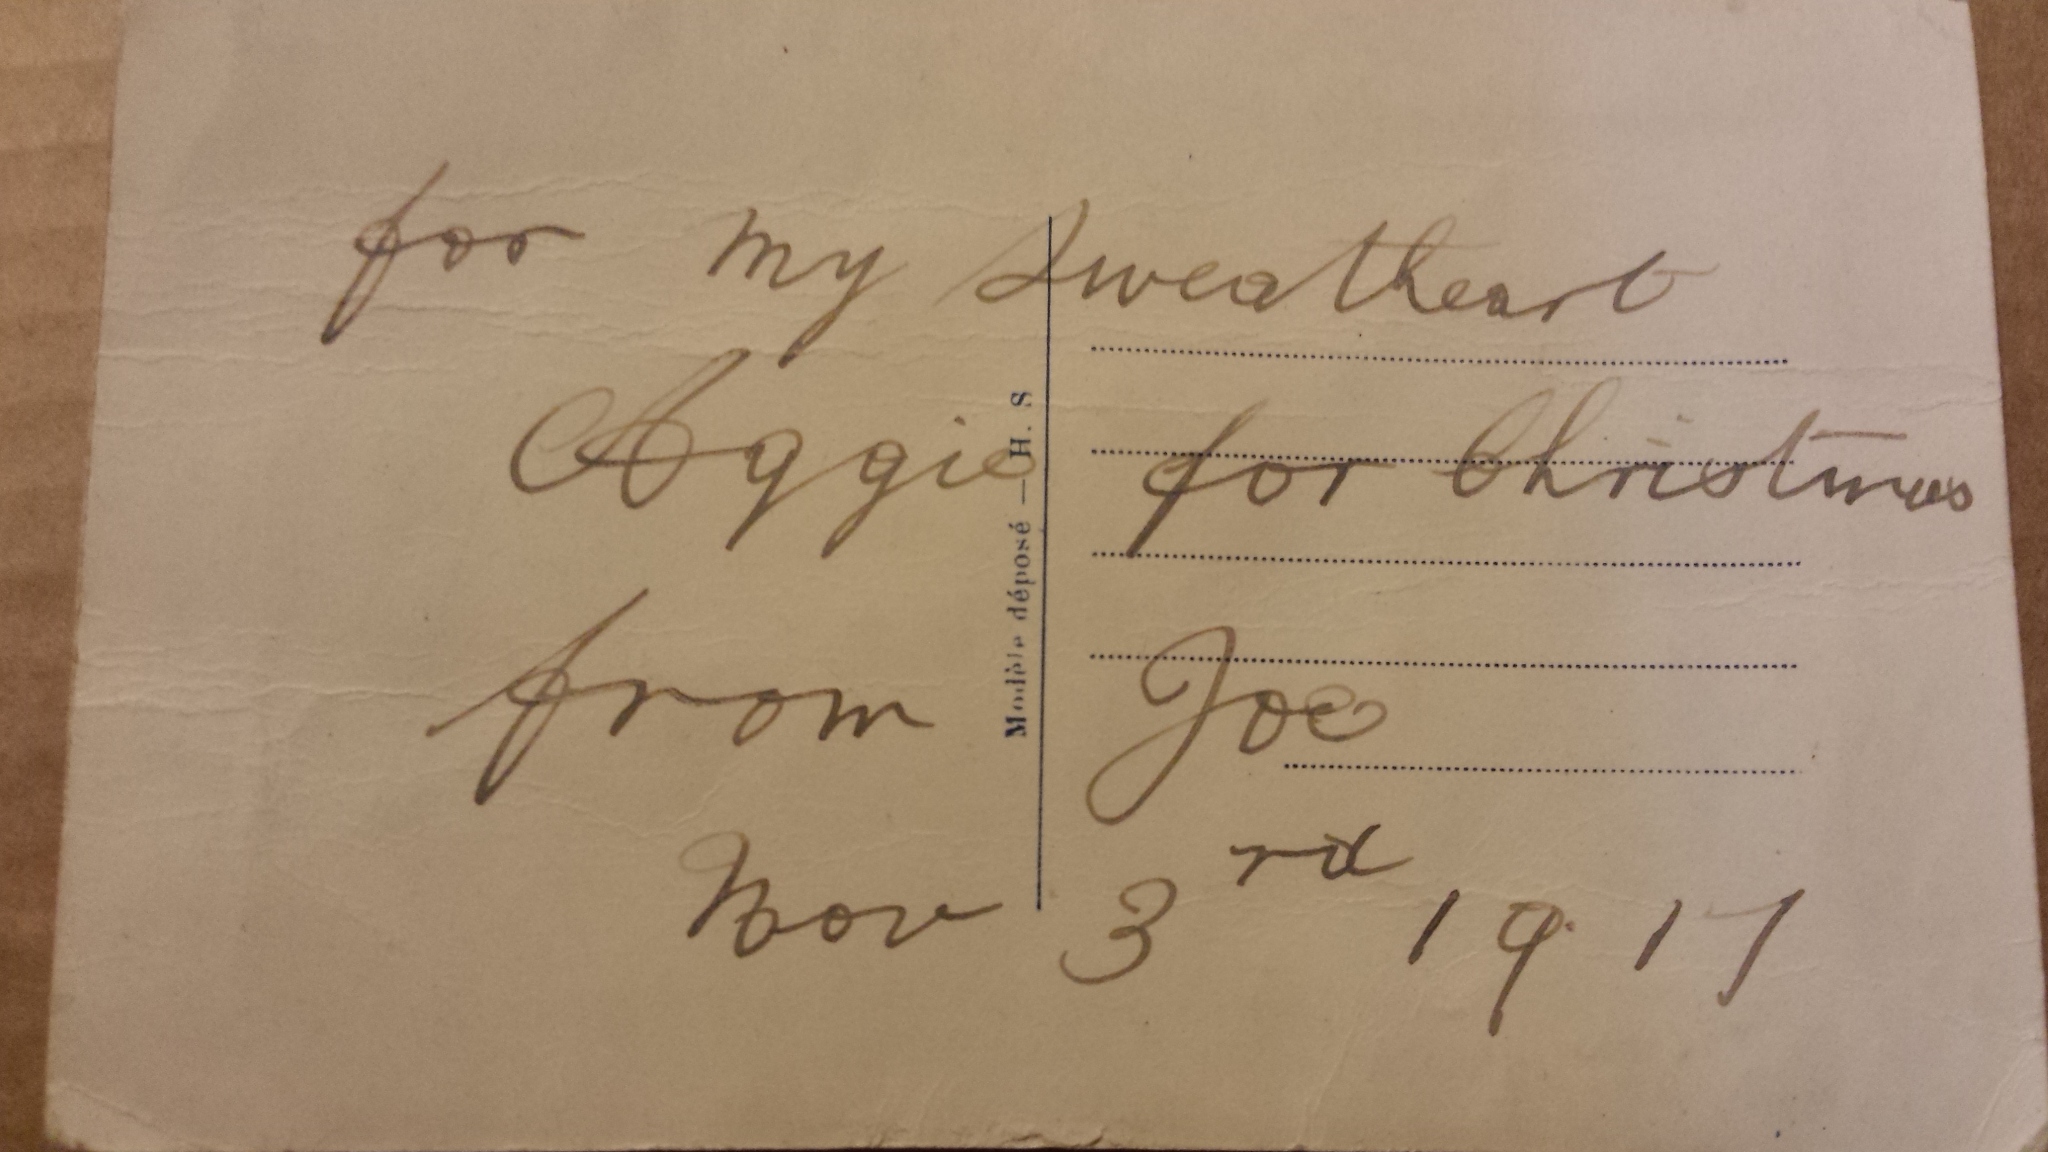 for my sweatheart
Aggie for Christmas
from Joe
Nov 3rd 1917
Modèle déposé — H. S